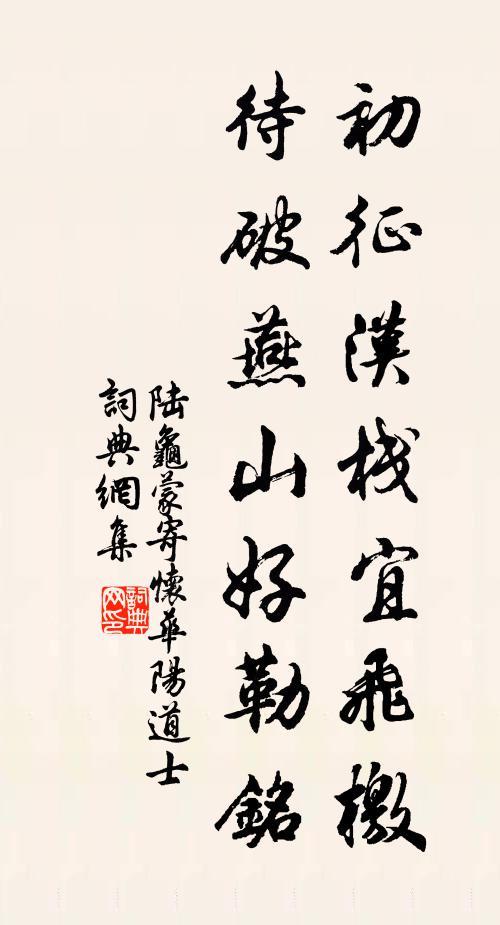 初征漢棧宜飛檄
待破燕山好勒銘
陸龜蒙寄懷華陽道士
詞典網集
詞典网印